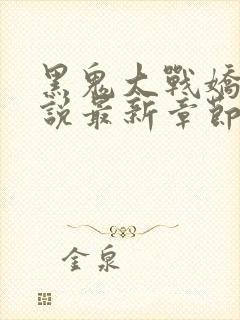 黑鬼大戰嬌
說最新章節
金泉